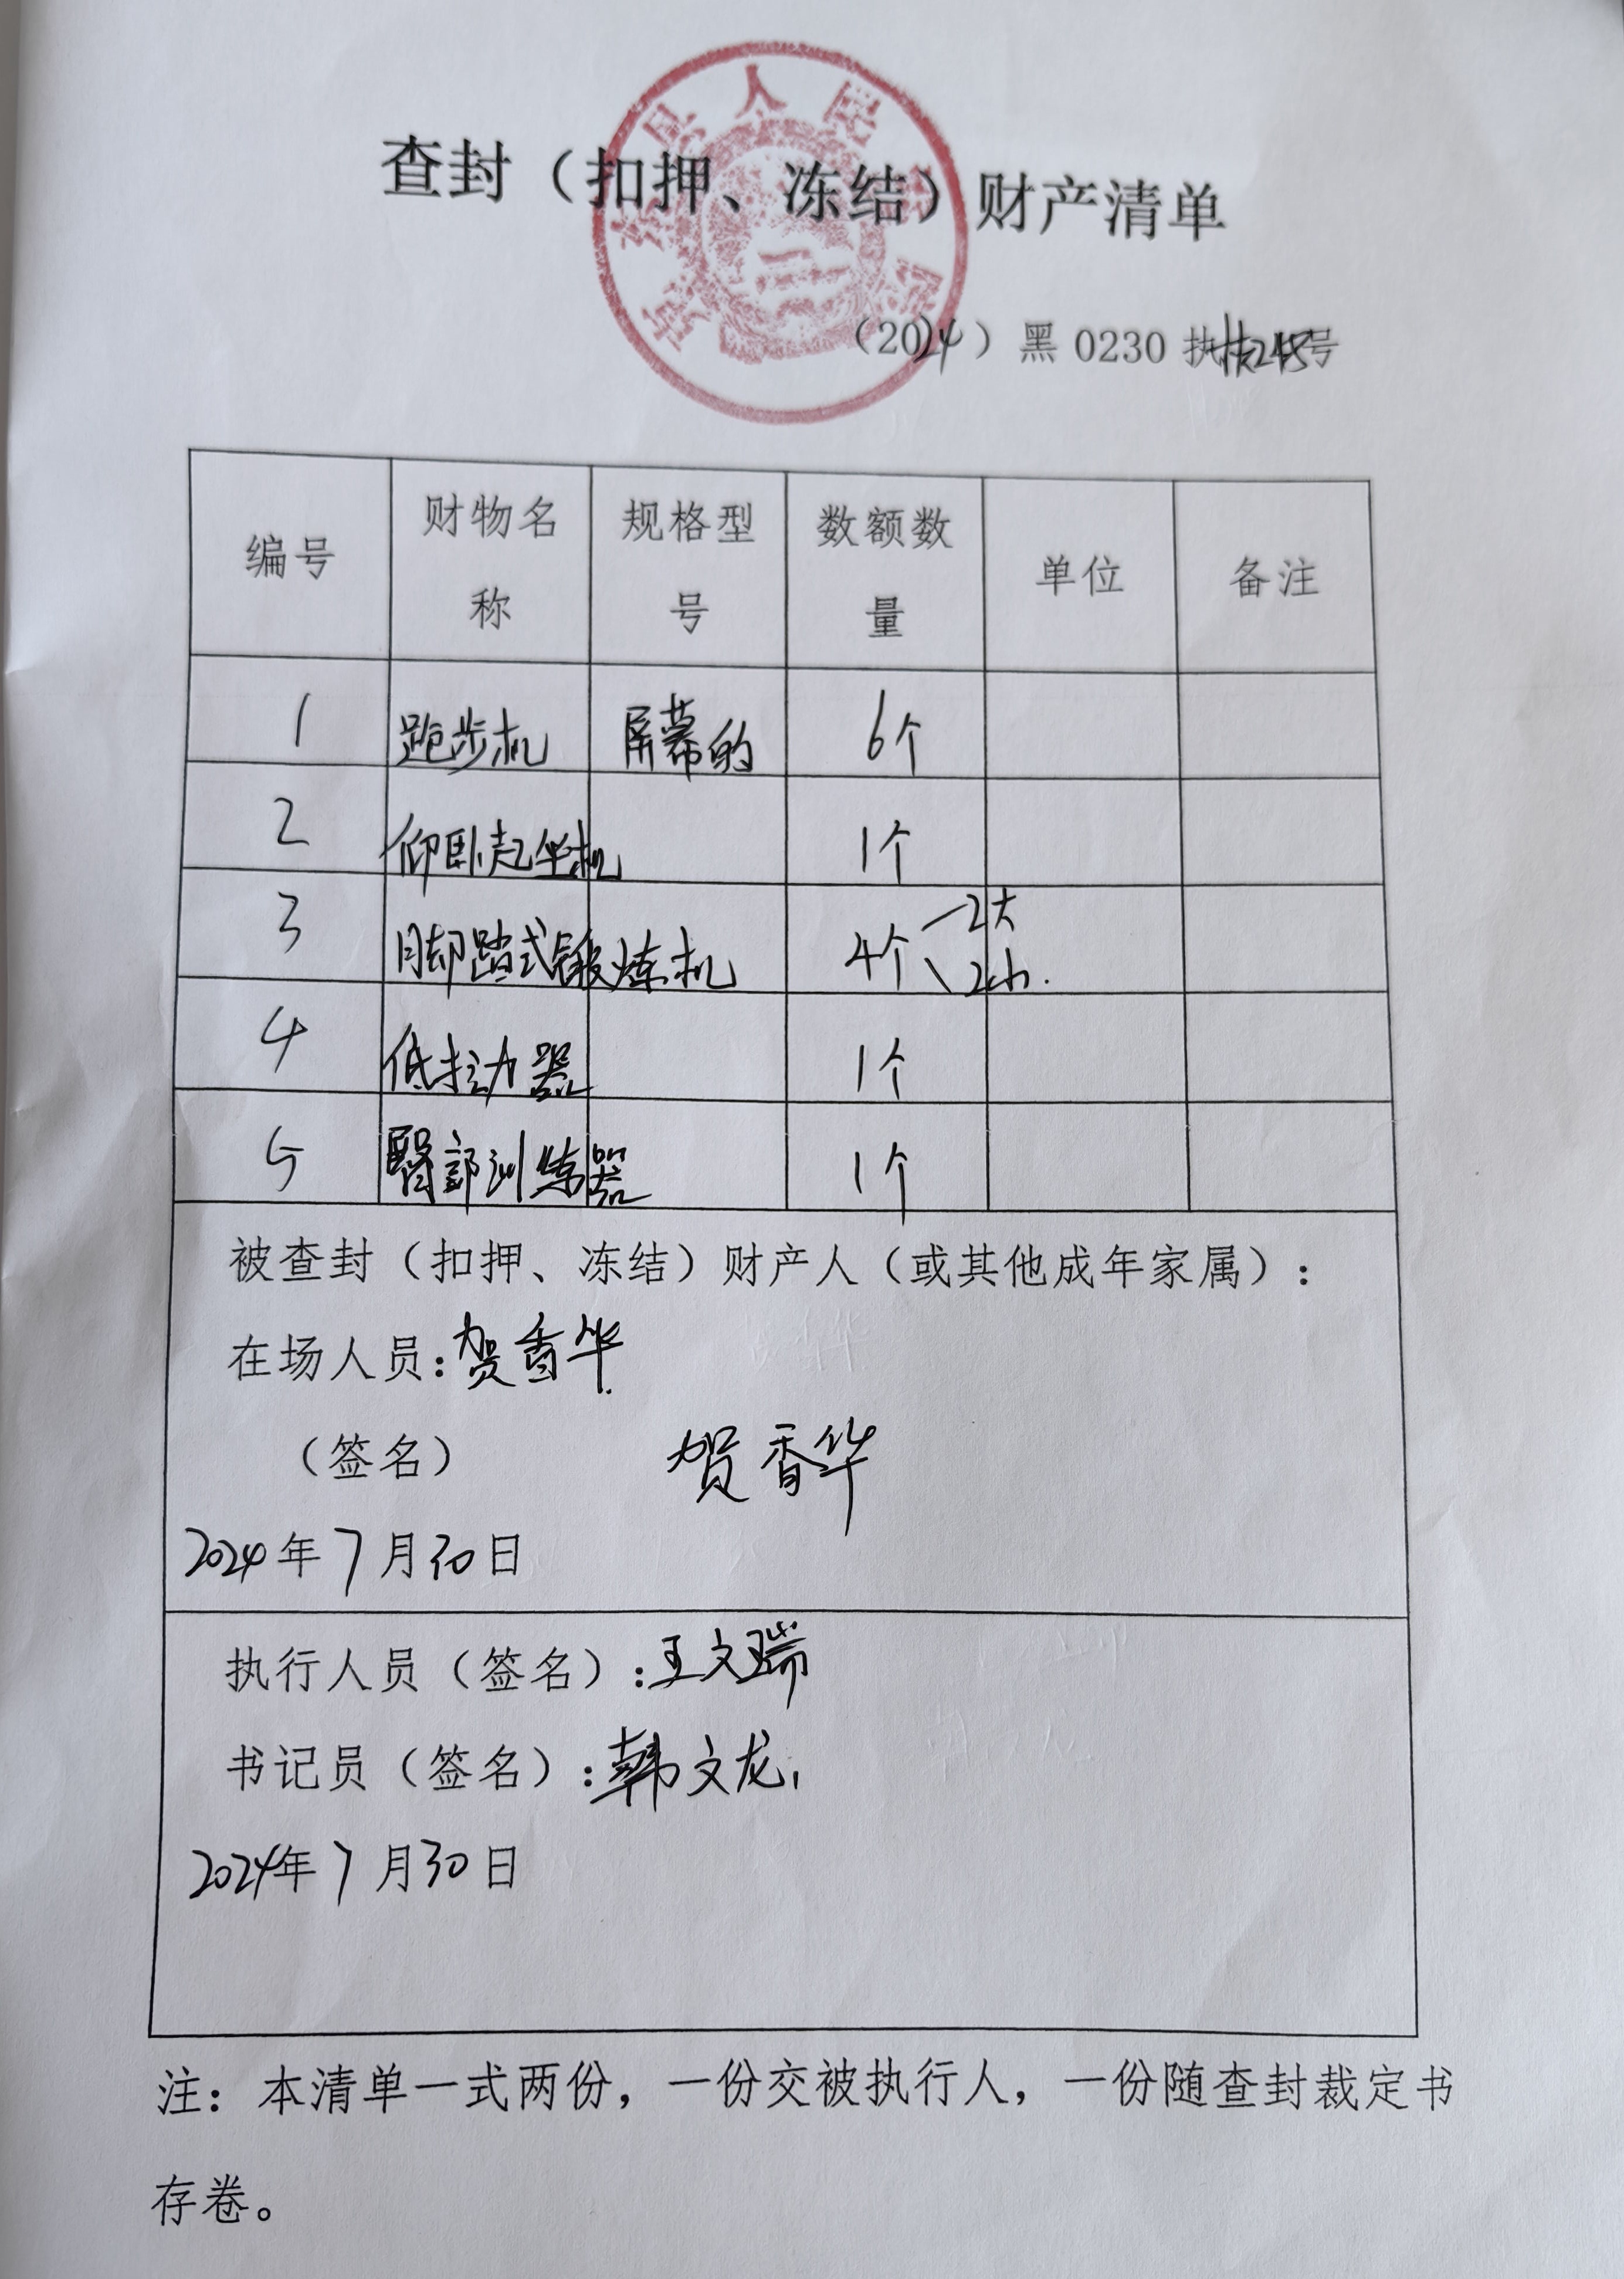 查封（扣押、冻结）财产清单
（2024）黑0230执恢245号
编号 财物名称 规格型号 数额数量 单位 备注
1 跑步机 屏幕的 6个
2 仰卧起坐机 1个
3 脚踏式锻炼机 4个 2大 2小.
4 低拉力器 1个
5 臀部训练器 1个
被查封（扣押、冻结）财产人（或其他成年家属）：
在场人员：贺香华
（签名） 贺香华
2024年7月30日
执行人员（签名）：王文瑞
书记员（签名）：韩文龙
2024年7月30日
注：本清单一式两份，一份交被执行人，一份随查封裁定书
存卷。